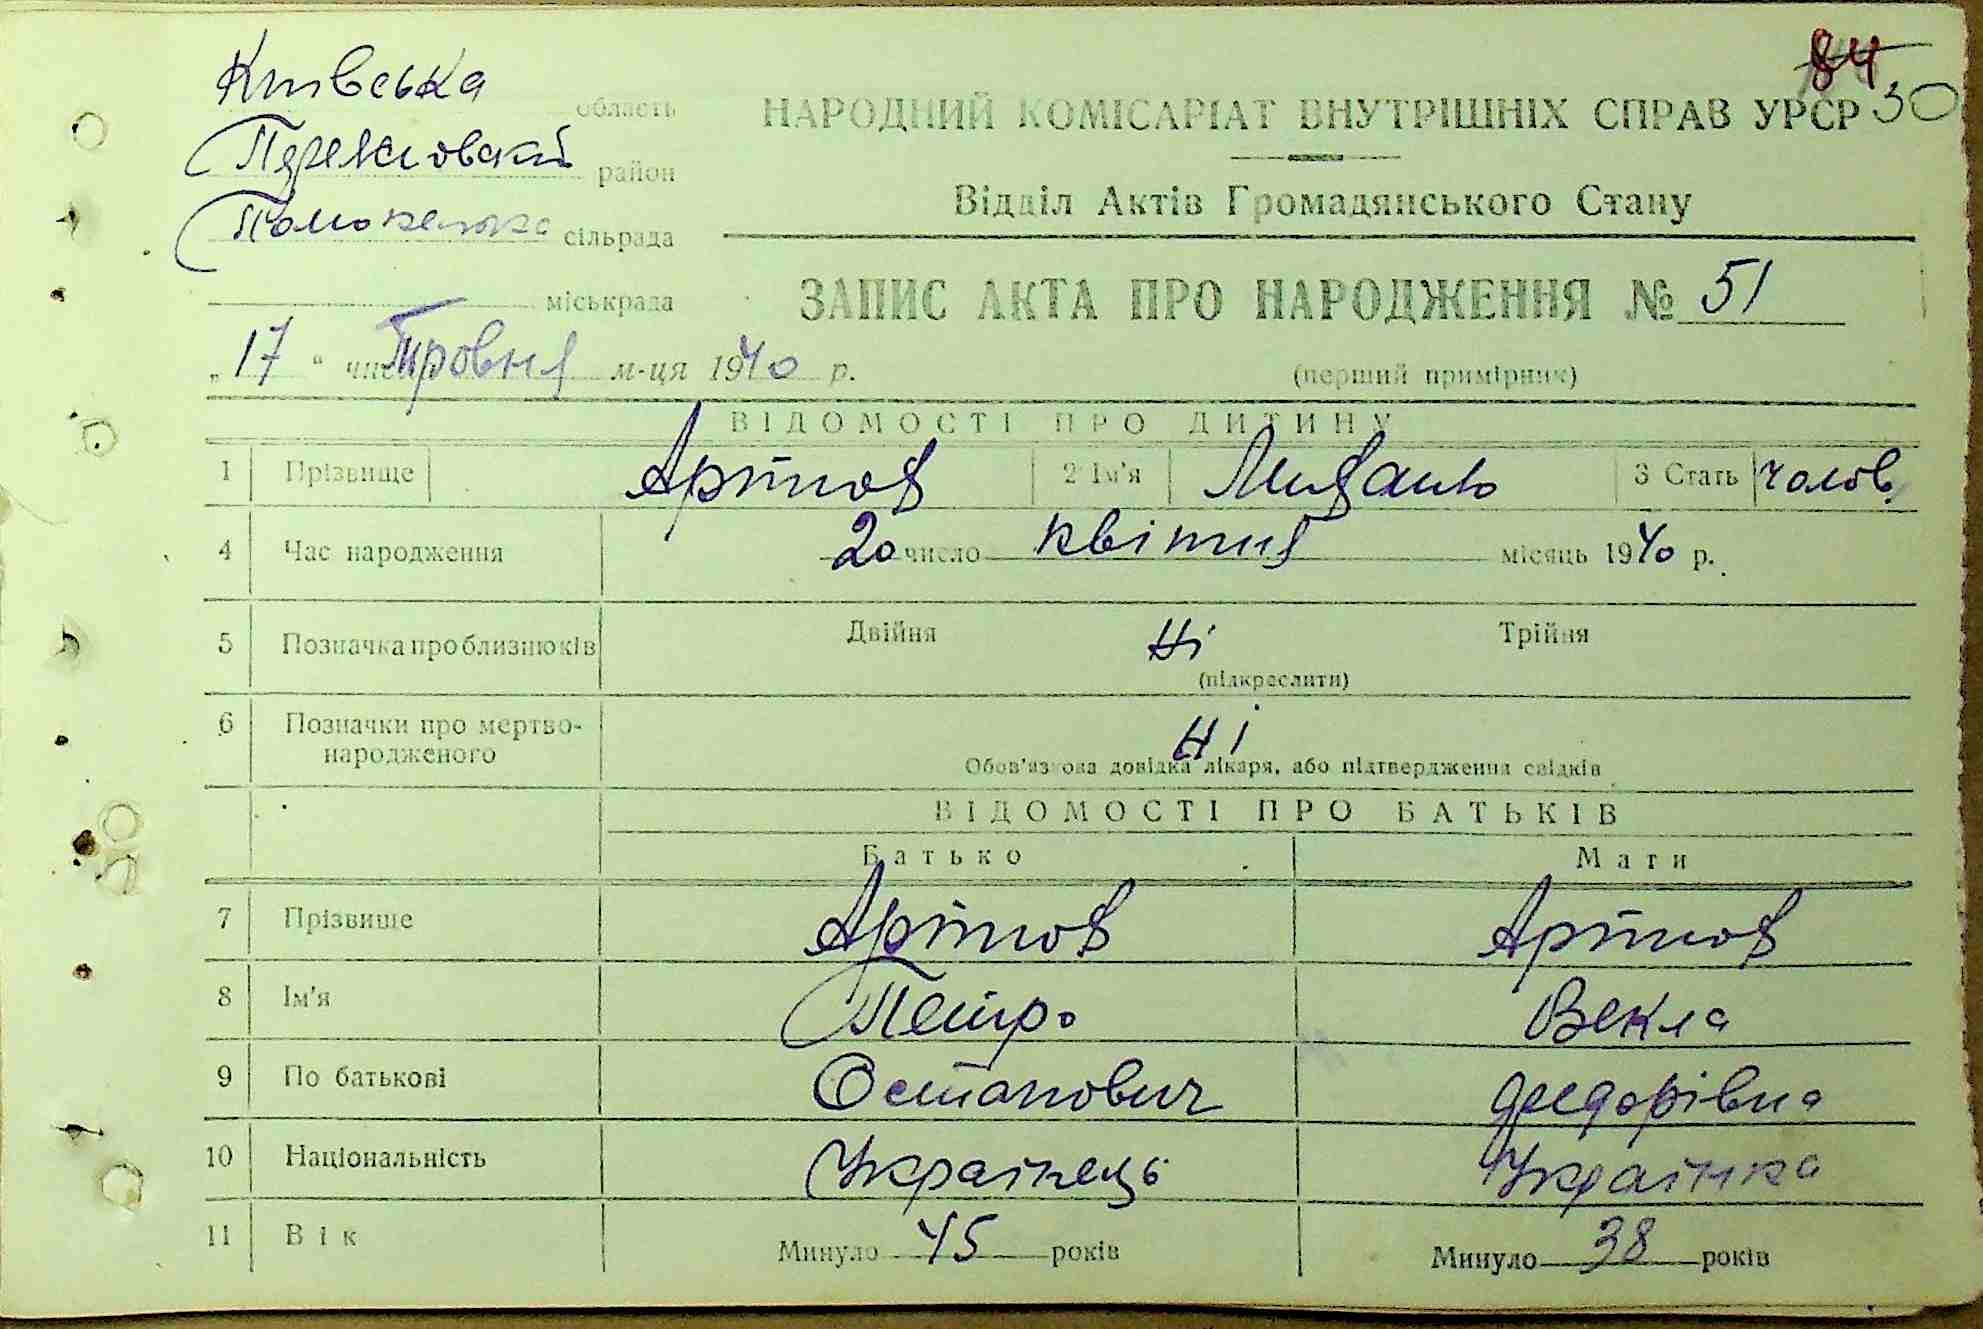 84
Київська область
НАРОДНИЙ КОМІСАРІАТ ВНУТРІШНІХ СПРАВ УРСР 50
район
Відділ Актів Громадянського Стану
сільрада
міськрада
ЗАПИС АКТА ПРО НАРОДЖЕННЯ № 51
„17“ числа м-ця 1940 р.
(перший примірник)
ВІДОМОСТІ ПРО ДИТИНУ
1 Прізвище 2 Ім'я 3 Стать чолов.
4 Час народження 20 число квітня місяць 1940 р.
5 Позначка про близнюків Двійня Ні Трійня
(підкреслити)
6 Позначки про мертво-
народженого Ні
Обов'язкова довідка лікаря, або підтвердження свідків
ВІДОМОСТІ ПРО БАТЬКІВ
Батько Мати
7 Прізвище
8 Ім'я Петро Векла
9 По батькові Остапович Федорівна
10 Національність Українець Українка
11 Вік Минуло 45 років Минуло 38 років